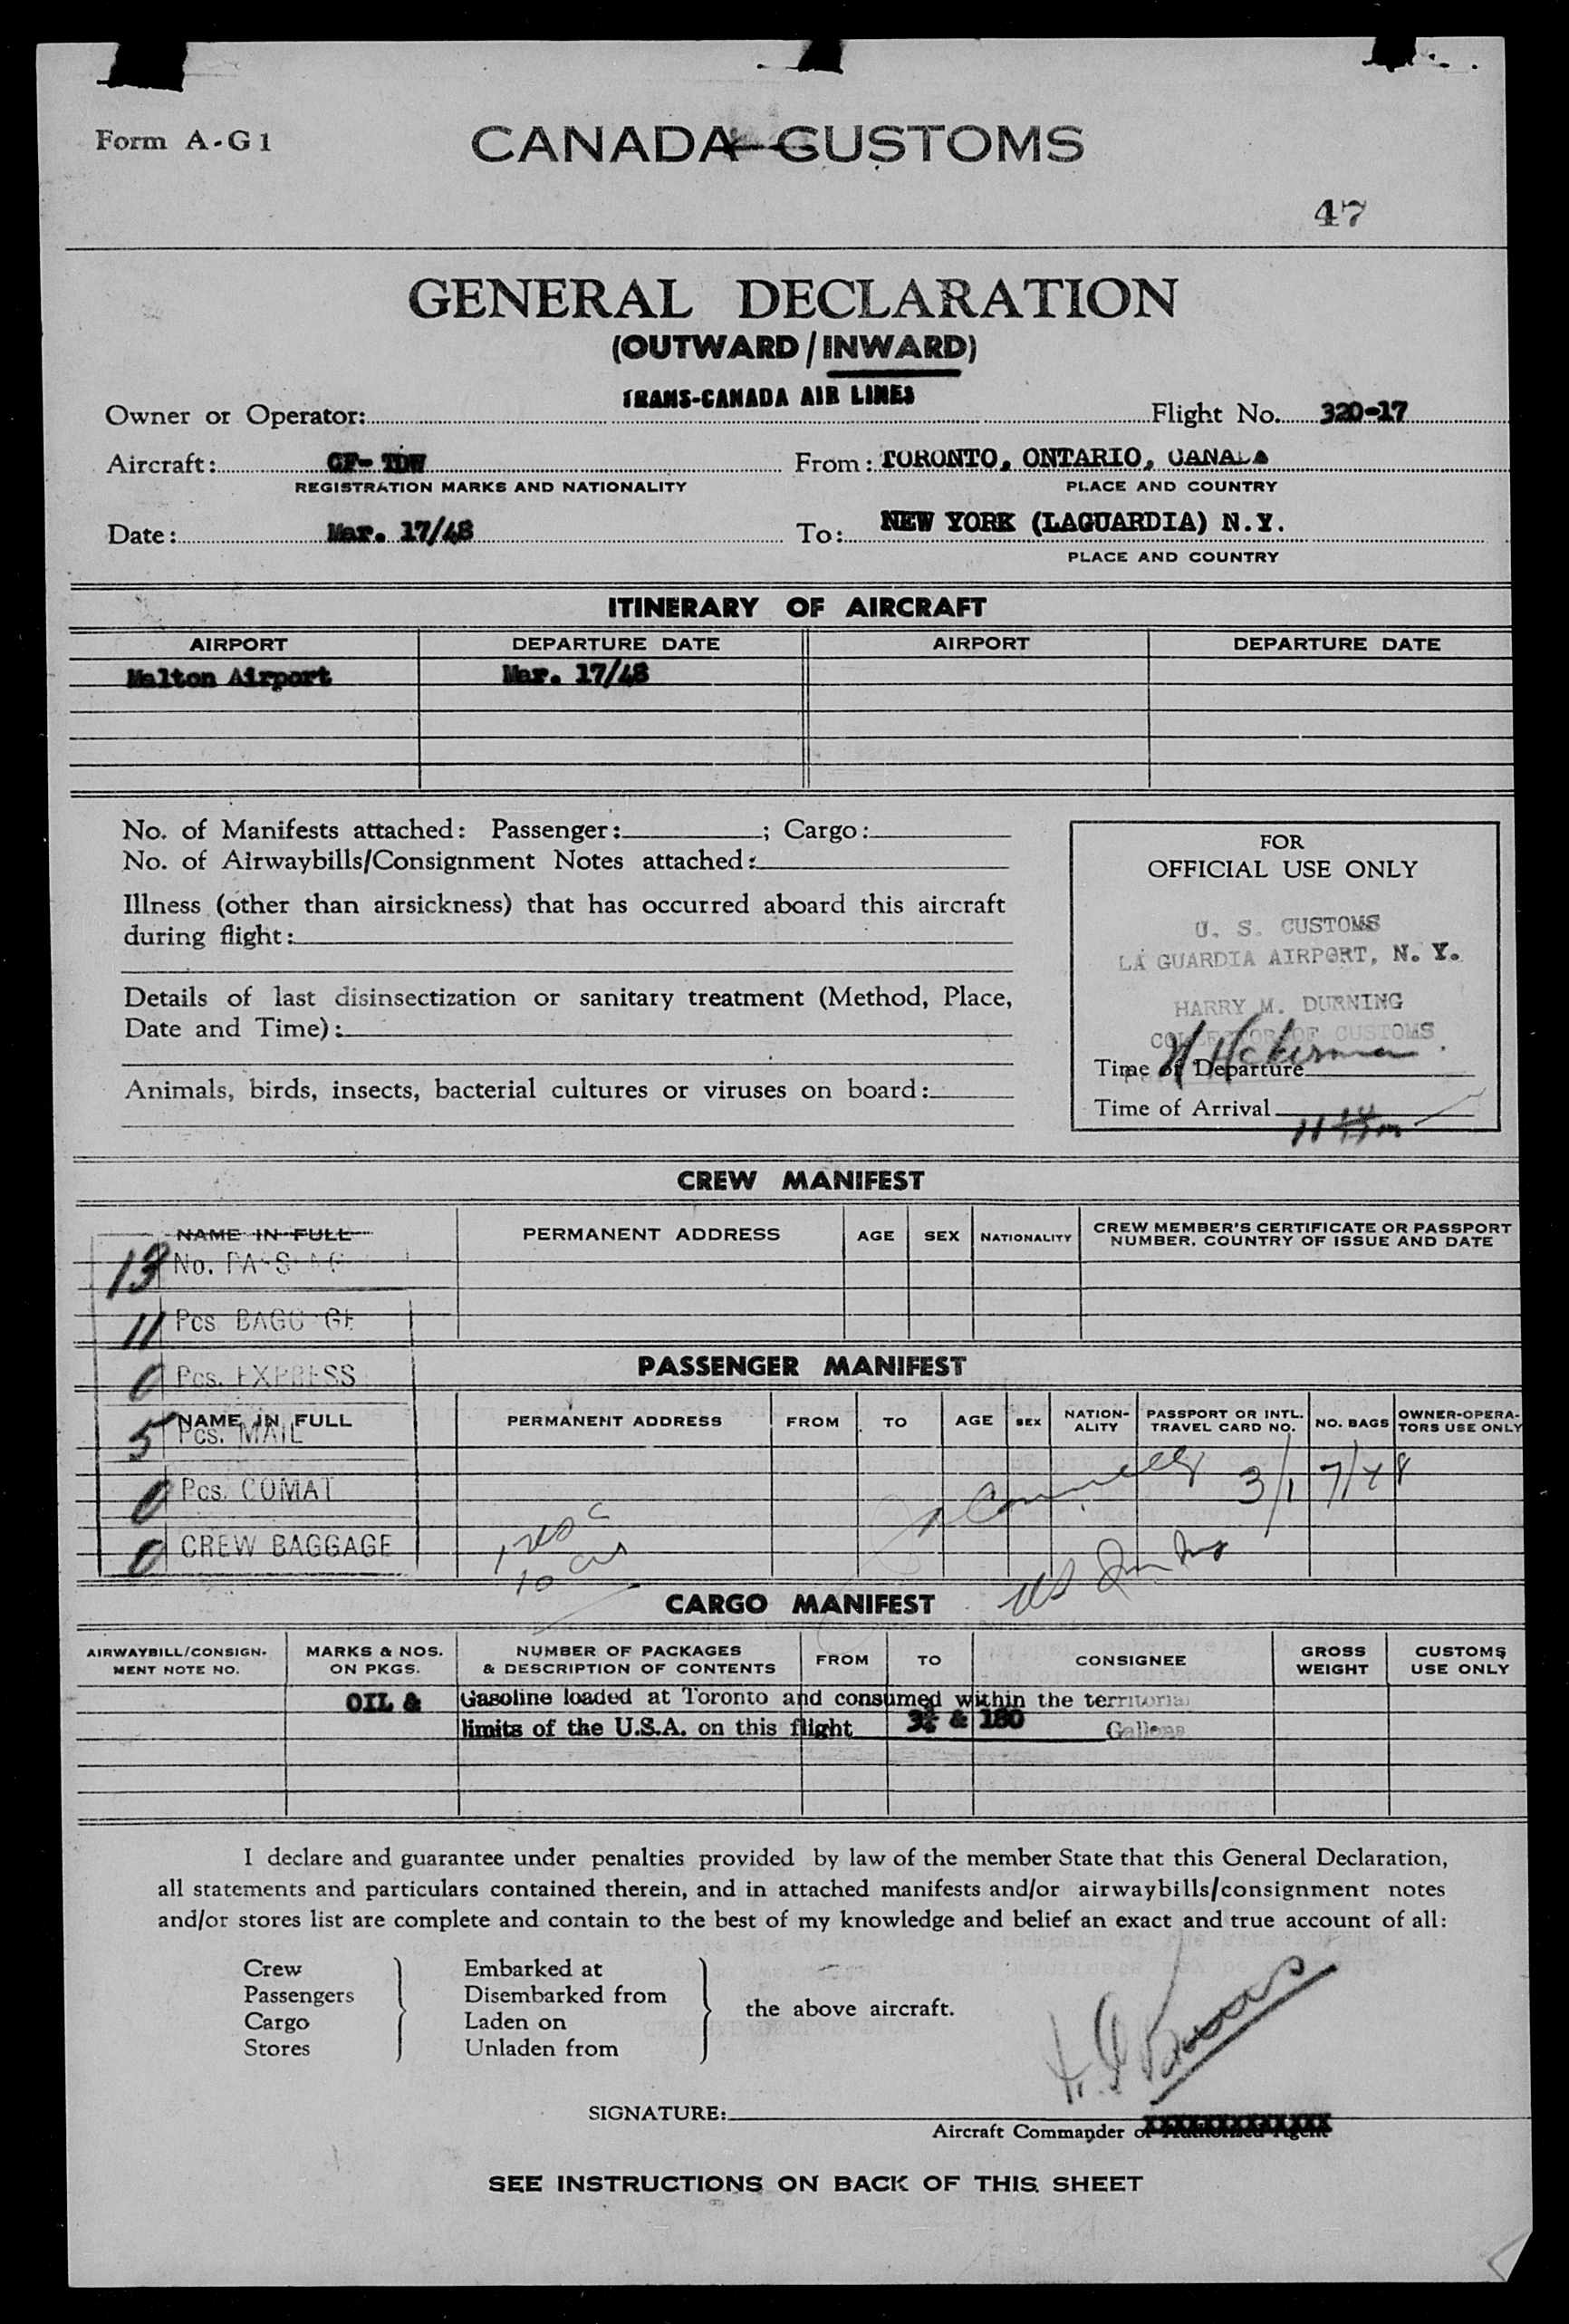 Form A-G1
CANADA CUSTOMS
47
GENERAL DECLARATION
(OUTWARD / INWARD)
Owner or Operator: TRANS-CANADA AIR LINES Flight No. 320-17
Aircraft: CF- TDW From: TORONTO, ONTARIO, CANADA
REGISTRATION MARKS AND NATIONALITY PLACE AND COUNTRY
Date: Mar. 17/48 To: NEW YORK (LAGUARDIA) N.Y.
PLACE AND COUNTRY
ITINERARY OF AIRCRAFT
AIRPORT DEPARTURE DATE AIRPORT DEPARTURE DATE
Malton Airport Mar. 17/48
No. of Manifests attached: Passenger: ; Cargo:
No. of Airwaybills/Consignment Notes attached:
Illness (other than airsickness) that has occurred aboard this aircraft
during flight:
Details of last disinsectization or sanitary treatment (Method, Place,
Date and Time):
Animals, birds, insects, bacterial cultures or viruses on board:
FOR
OFFICIAL USE ONLY
U. S. CUSTOMS
LA GUARDIA AIRPORT, N. Y.
HARRY M. DURNING
COLLECTOR OF CUSTOMS
Time of Departure
Time of Arrival
CREW MANIFEST
NAME IN FULL PERMANENT ADDRESS AGE SEX NATIONALITY CREW MEMBER'S CERTIFICATE OR PASSPORT
NUMBER, COUNTRY OF ISSUE AND DATE
13 No.
11 Pcs BAGGAGE
0 Pcs. EXPRESS
PASSENGER MANIFEST
NAME IN FULL PERMANENT ADDRESS FROM TO AGE SEX NATION-
ALITY PASSPORT OR INTL.
TRAVEL CARD NO. NO. BAGS OWNER-OPERA-
TORS USE ONLY
5 Pcs. MAIL
3/17/48
0 Pcs. COMAT
0 CREW BAGGAGE
CARGO MANIFEST
AIRWAYBILL/CONSIGN-
MENT NOTE NO. MARKS & NOS.
ON PKGS. NUMBER OF PACKAGES
& DESCRIPTION OF CONTENTS FROM TO CONSIGNEE GROSS
WEIGHT CUSTOMS
USE ONLY
OIL & Gasoline loaded at Toronto and consumed within the territorial
limits of the U.S.A. on this flight & 180 Gallons
I declare and guarantee under penalties provided by law of the member State that this General Declaration,
all statements and particulars contained therein, and in attached manifests and/or airwaybills/consignment notes
and/or stores list are complete and contain to the best of my knowledge and belief an exact and true account of all:
Crew Embarked at
Passengers Disembarked from
Cargo Laden on
Stores Unladen from
the above aircraft.
SIGNATURE:
Aircraft Commander or Authorized Agent
SEE INSTRUCTIONS ON BACK OF THIS SHEET